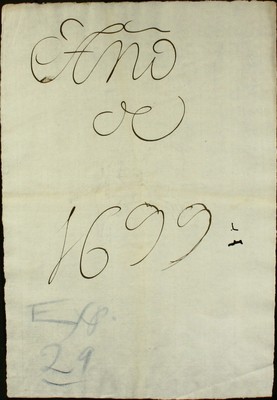 Año
de
1699
Exp.
29